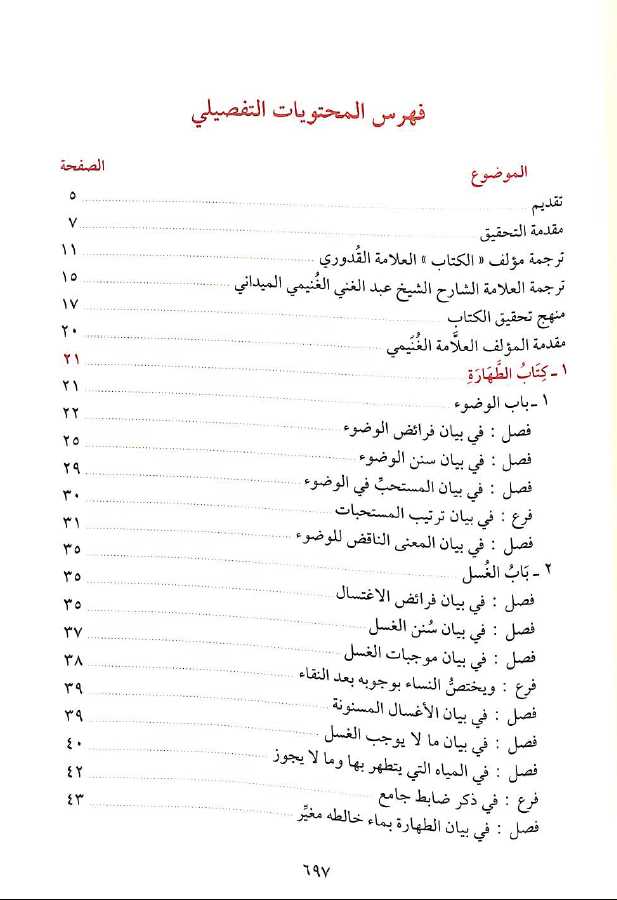 فهرس المحتويات التفصيلي
الموضوع الصفحة
تقديم ٥
مقدمة التحقيق ٧
ترجمة مؤلف « الكتاب » العلامة القُدوري ١١
ترجمة العلامة الشارح الشيخ عبد الغني الغُنيمي الميداني ١٥
منهج تحقيق الكتاب ١٧
مقدمة المؤلف العلاَّمة الغُنَيمي ٢٠
١ ـ كِتَابُ الطَّهَارَةِ ٢١
١ ـ باب الوضوء ٢١
فصل : في بيان فرائض الوضوء ٢٢
فصل : في بيان سنن الوضوء ٢٥
فصل : في بيان المستحبِّ في الوضوء ٢٩
فرع : في بيان ترتيب المستحبات ٣٠
فصل : في بيان المعنى الناقض للوضوء ٣١
٢ ـ بَابُ الغُسل ٣٥
فصل : في بيان فرائض الاغتسال ٣٥
فصل : في بيان سُنن الغسل ٣٥
فصل : في بيان موجبات الغسل ٣٧
فرع : ويختصُّ النساء بوجوبه بعد النقاء ٣٨
فصل : في بيان الأغسال المسنونة ٣٩
فصل : في بيان ما لا يوجب الغسل ٣٩
فصل : في المياه التي يتطهر بها وما لا يجوز ٤٠
فرع : في ذكر ضابط جامع ٤٢
فصل : في بيان الطهارة بماء خالطه مغيِّر ٤٣
٦٩٧